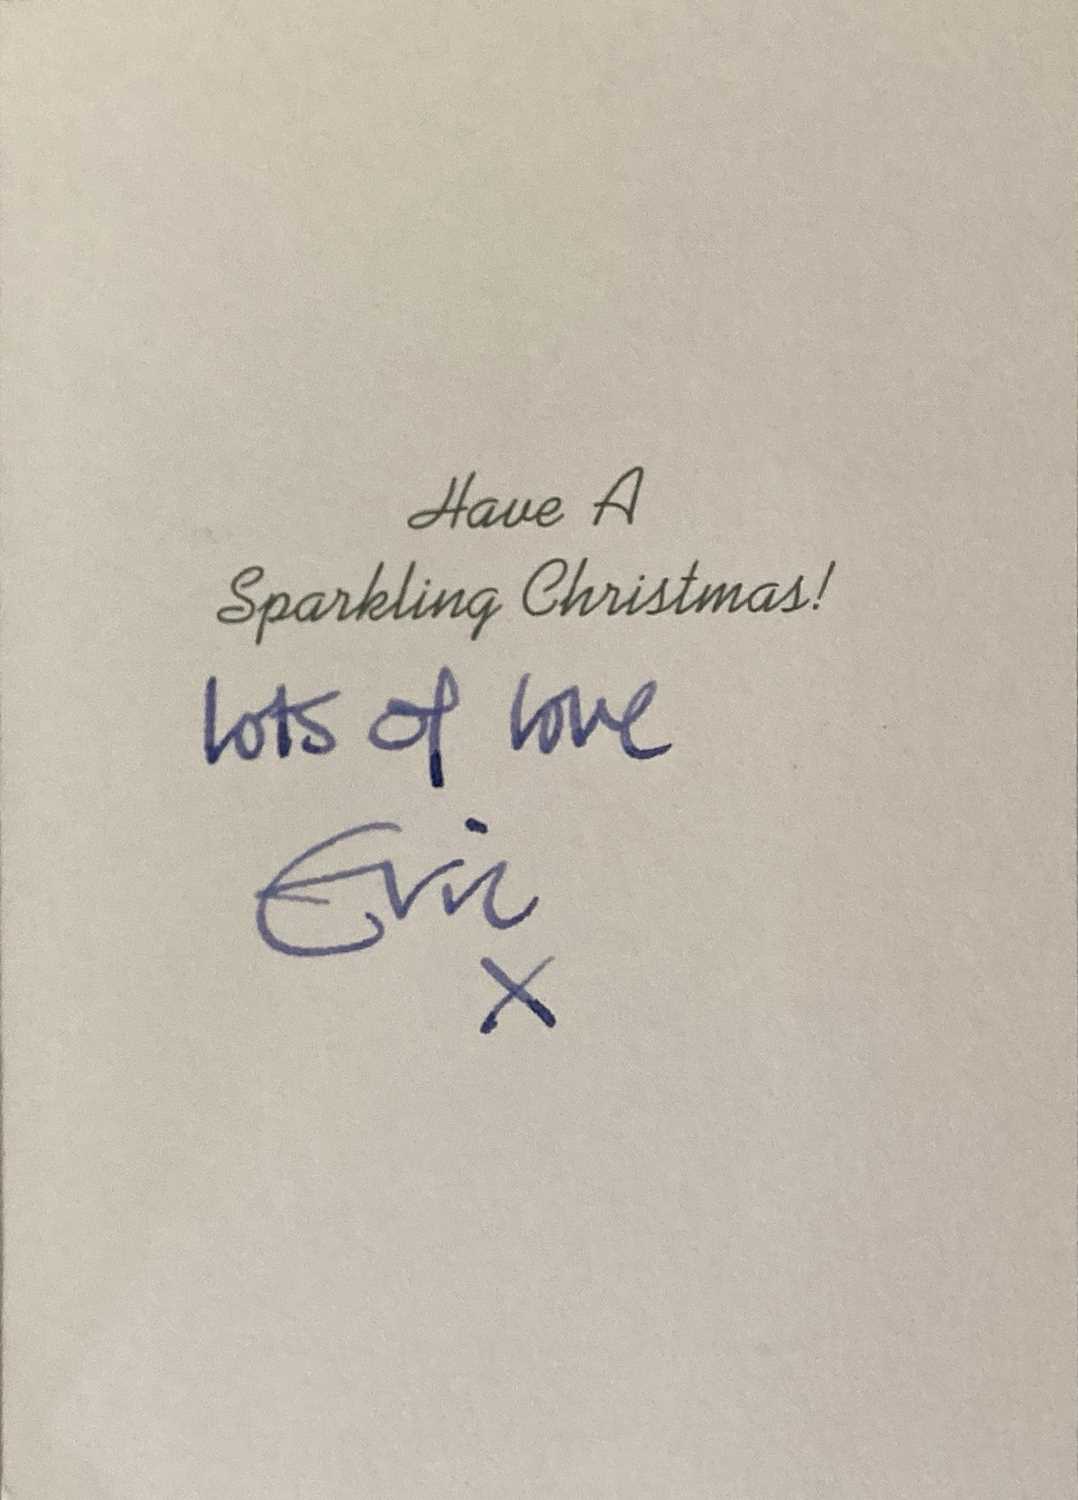 Have A
Sparkling Christmas!
lots of love
Eric
X